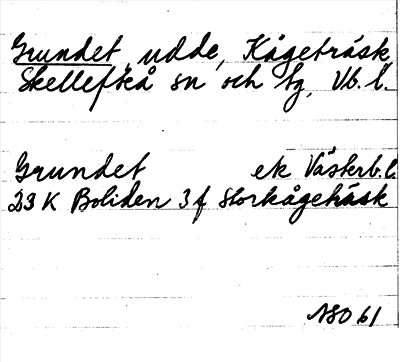 Grundet, udde, Kågeträsk,
Skellefteå sn och tg, Vb. l.
Grundet ek Västerb. l
23 K Boliden 3 f Storkågeträsk
NSO 61